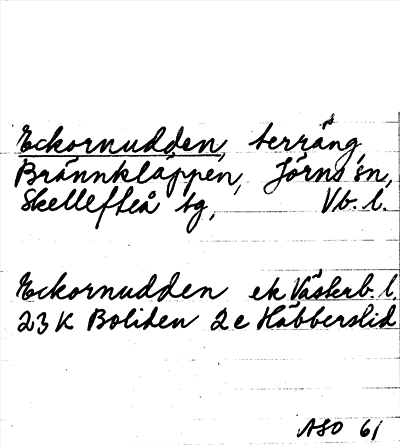 Eckornudden, terräng,
Brännkläppen, Jörns sn,
Skellefteå tg, Vb. l.
Eckornudden ek Västerb. l.
23 K Boliden 2 e Häbberslid
ASO 61